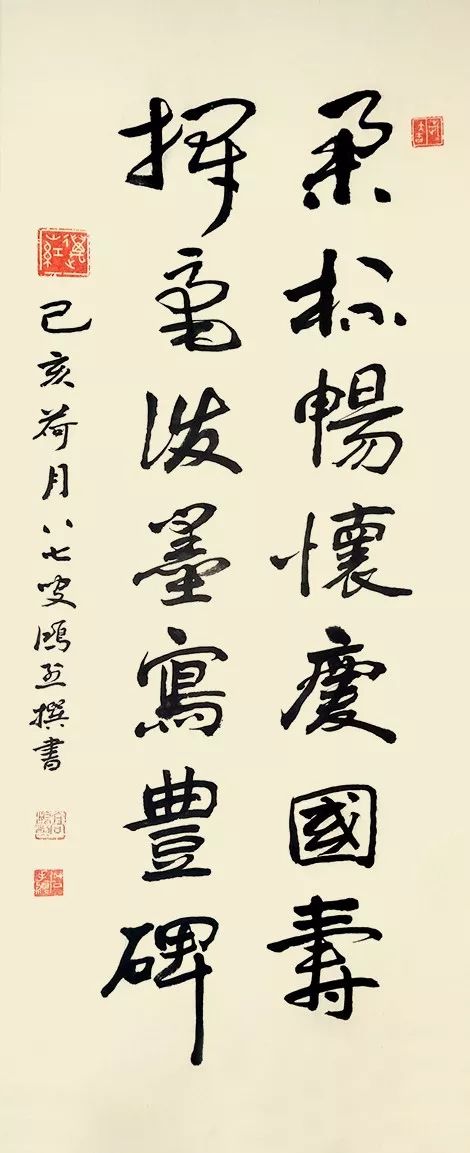 舉杯暢懷慶國壽
揮毫潑墨寫豐碑
己亥荷月八七叟鴻撰書